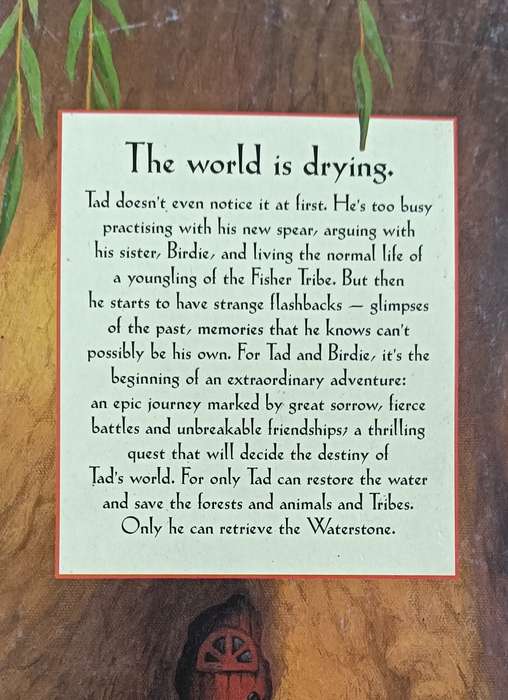 The world is drying.
Tad doesn't even notice it at first. He's too busy
practising with his new spear, arguing with
his sister, Birdie, and living the normal life of
a youngling of the Fisher Tribe. But then
he starts to have strange flashbacks — glimpses
of the past, memories that he knows can't
possibly be his own. For Tad and Birdie, it's the
beginning of an extraordinary adventure:
an epic journey marked by great sorrow, fierce
battles and unbreakable friendships; a thrilling
quest that will decide the destiny of
Tad's world. For only Tad can restore the water
and save the forests and animals and Tribes.
Only he can retrieve the Waterstone.